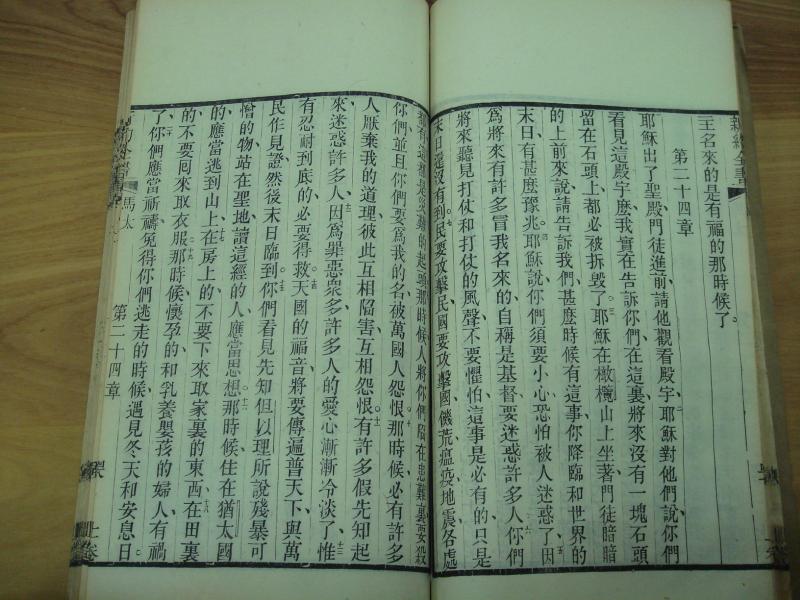 新約全書
主名來的是有福的那時候了。
第二十四章
耶穌出了聖殿門徒進前請他觀看殿宇、二耶穌對他們說你們
看見這殿宇麽我實在告訴你們在這裏將來沒有一塊石頭
留在石頭上都必被拆毀了。三耶穌在橄欖山上坐著門徒暗暗
的上前來說請告訴我們、甚麽時候有這事你降臨和世界的
末日、有甚麽豫兆。四耶穌說你們須要小心恐怕被人迷惑了。五因
爲將來有許多冒我名來的自稱是基督要迷惑許多人。六你們
將來聽見打仗和打仗的風聲不要懼怕這事是必有的只是
末日還沒有到。七民要攻擊民國要攻擊國、饑荒瘟疫地震各處
都有這都是災難的起頭那時候人將你們陷在患難裏要殺
你們、並且你們要爲我的名被萬國人怨恨。十那時候必有許多
人厭棄我的道理彼此互相陷害互相怨恨。十一有許多假先知起
來迷惑許多人。十二因爲罪惡衆多許多人的愛心漸漸冷淡了。十三惟
有忍耐到底的必要得救。十四天國的福音將要傳遍普天下、與萬
民作見證然後末日臨到。十五你們看見先知但以理所說殘暴可
憎的物站在聖地讀這經的人應當思想。十六那時候住在猶太國
的應當逃到山上。十七在房上的不要下來取家裏的東西。十八在田裏
的不要囘來取衣服。十九那時候懷孕的和乳養嬰孩的婦人有禍
了。二十你們應當祈禱免得你們逃走的時候遇見冬天和安息日、
馬太
第二十四章